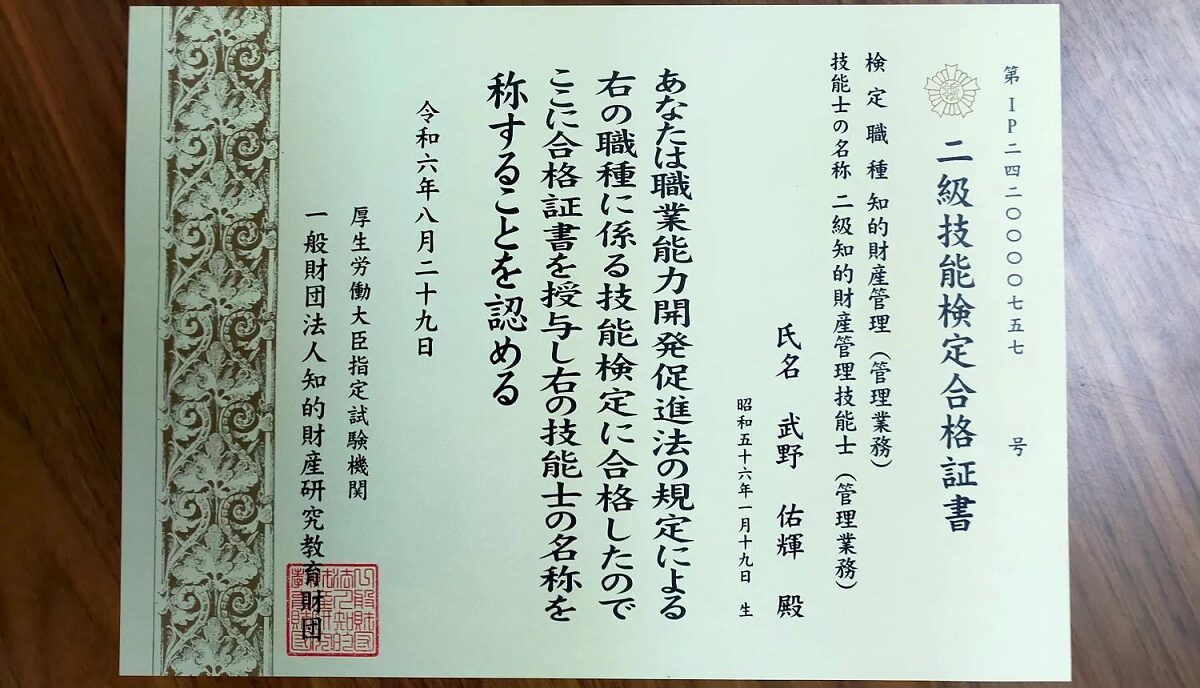 第IP二四二〇〇〇〇七五七 号
二級技能検定合格証書
検定職種 知的財産管理(管理業務)
技能士の名称 二級知的財産管理技能士(管理業務)
氏名 武野 佑輝 殿
昭和五十六年一月十九日 生
あなたは職業能力開発促進法の規定による
右の職種に係る技能検定に合格したので
ここに合格証書を授与し右の技能士の名称を
称することを認める
令和六年八月二十九日
厚生労働大臣指定試験機関
一般財団法人知的財産研究教育財団